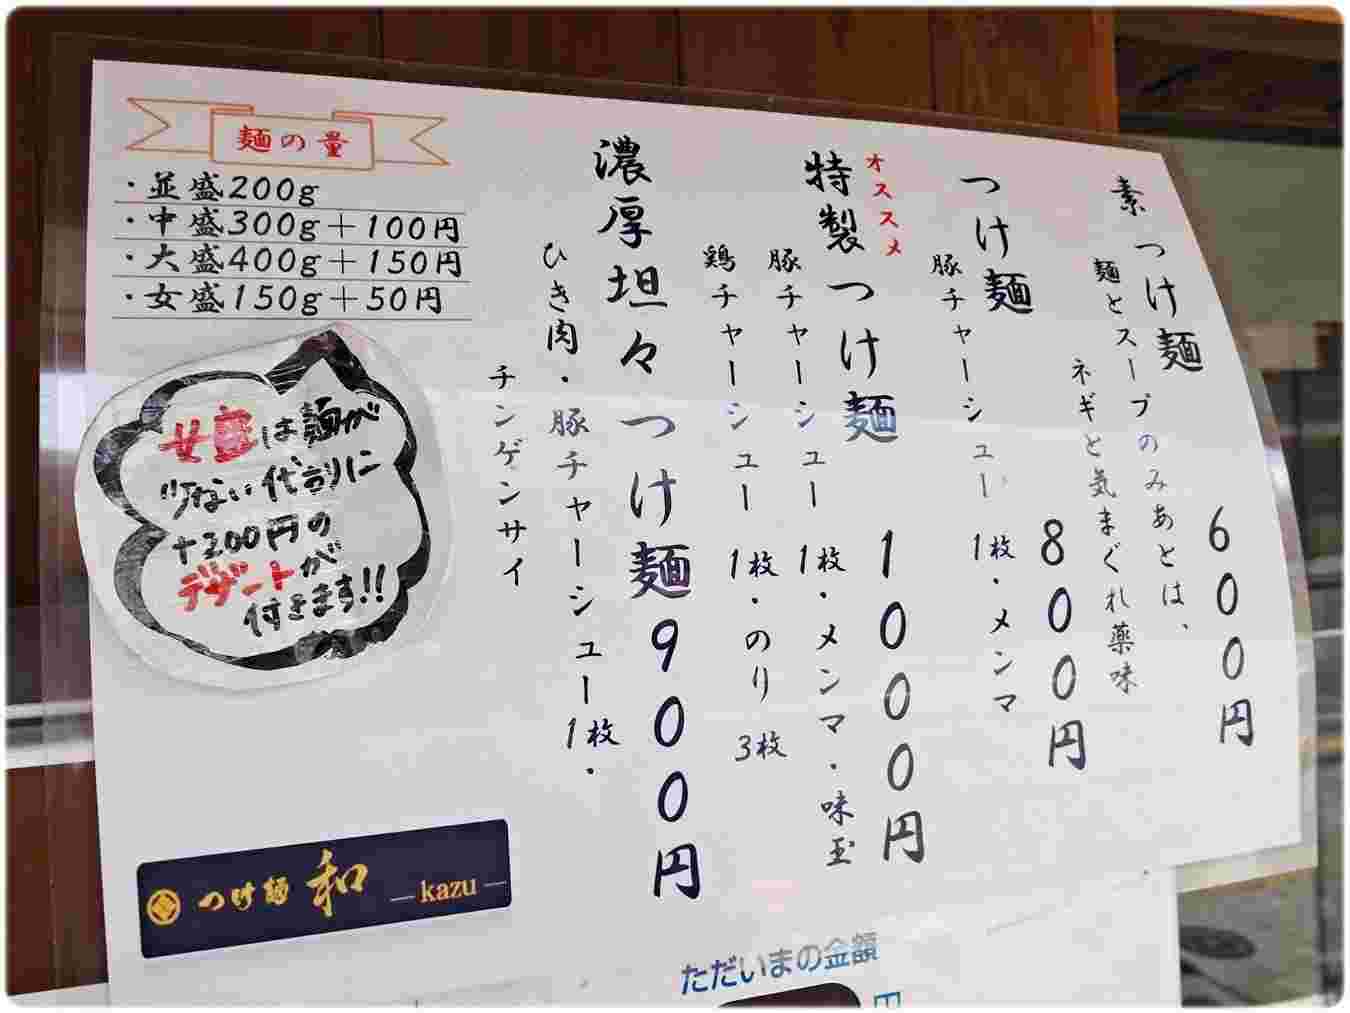 素つけ麺 600円
麺とスープのみあとは、
ネギと気まぐれ薬味
つけ麺 800円
豚チャーシュー 1枚・メンマ
オススメ
特製つけ麺 1000円
豚チャーシュー 1枚・メンマ・味玉
鶏チャーシュー 1枚・のり 3枚
濃厚坦々つけ麺 900円
ひき肉・豚チャーシュー 1枚・
チンゲンサイ
麺の量
・並盛200g
・中盛300g+100円
・大盛400g+150円
・女盛150g+50円
女盛は麺が
少ない代わりに
+200円の
デザートが
付きます!!
つけ麺 和 ―kazu―
ただいまの金額
円